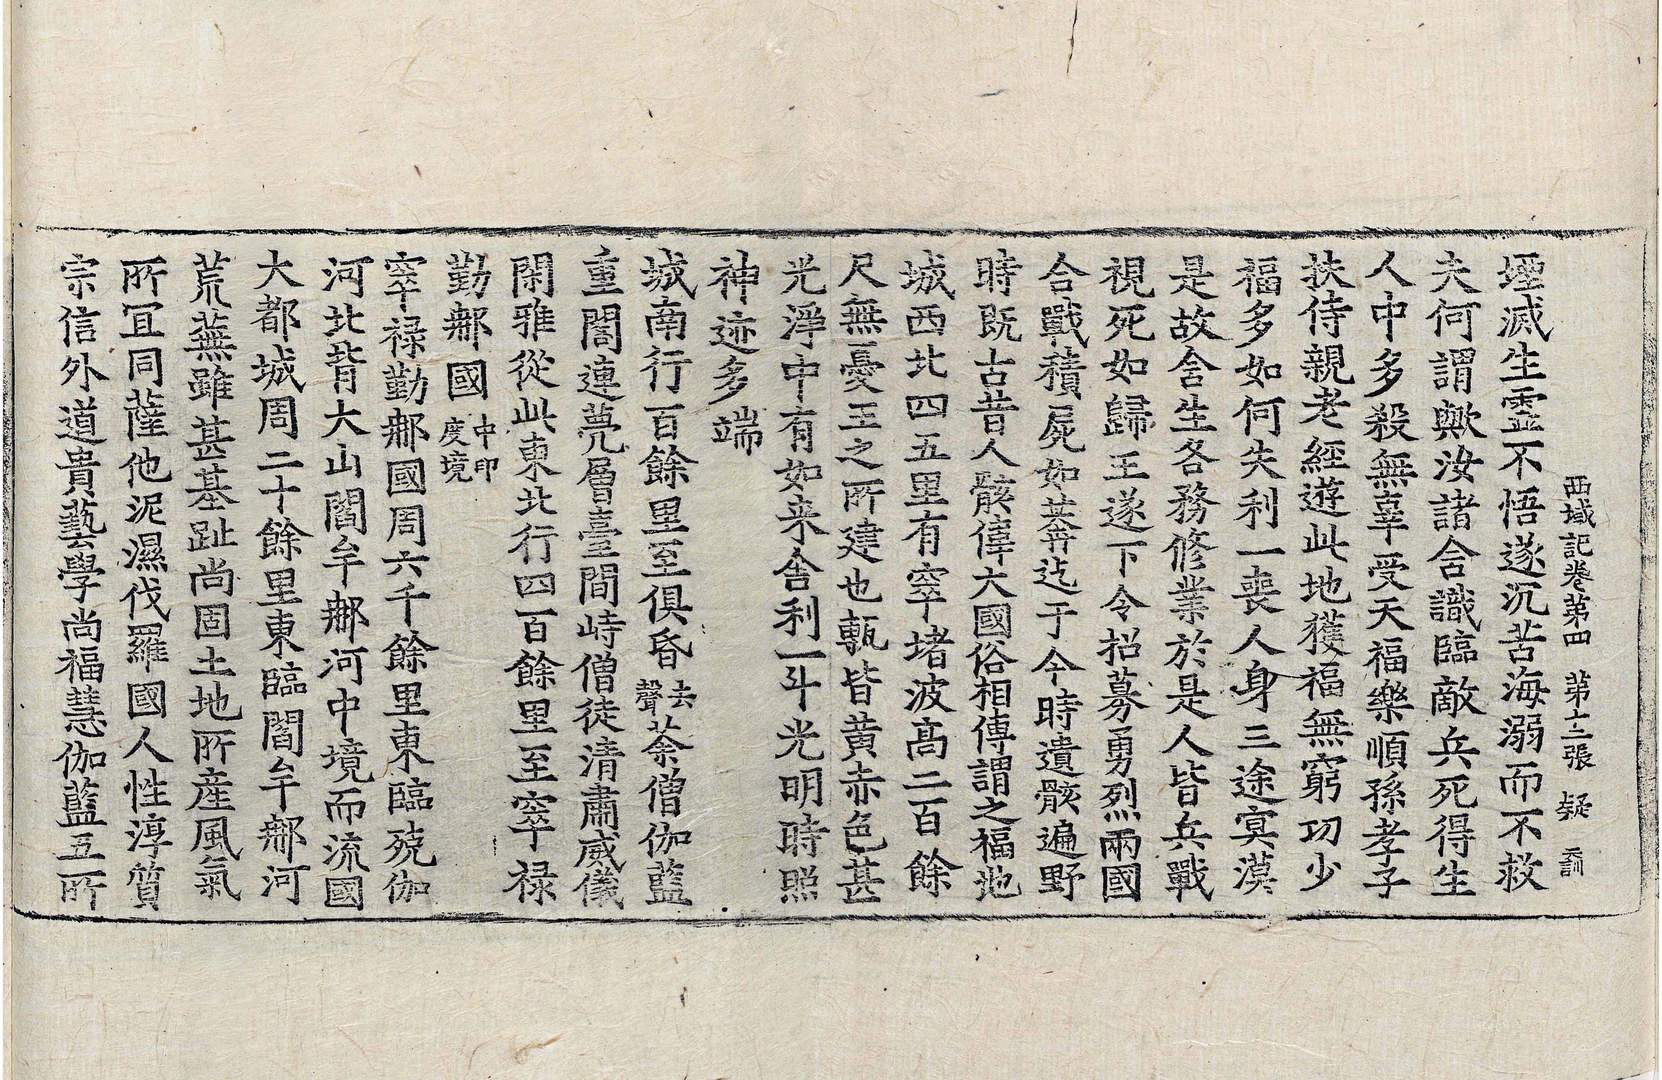 西域記卷第四　第十二張　疑　訓
堙滅生靈不悟遂沉苦海溺而不救
夫何謂歟汝諸含識臨敵兵死得生
人中多殺無辜受天福樂順孫孝子
扶侍親老經遊此地獲福無窮功少
福多如何失利一喪人身三途冥漠
是故含生各務修業於是人皆兵戰
視死如歸王遂下令招募勇烈兩國
合戰積屍如莽迄于今時遺骸遍野
時既古昔人骸偉大國俗相傳謂之福地
城西北四五里有窣堵波高二百餘
尺無憂王之所建也甎皆黃赤色甚
光淨中有如来舍利一斗光明時照
神迹多端
城南行百餘里至俱昏去聲荼僧伽藍
重閣連甍層臺間峙僧徒清肅威儀
閑雅從此東北行四百餘里至窣祿
勤鄅國中印度境
窣祿勤鄅國周六千餘里東臨殑伽
河北背大山閻牟鄅河中境而流國
大都城周二十餘里東臨閻牟鄅河
荒蕪雖甚基趾尚固土地所産風氣
所冝同薩他泥濕伐羅國人性淳質
宗信外道貴藝學尚福慧伽藍五所